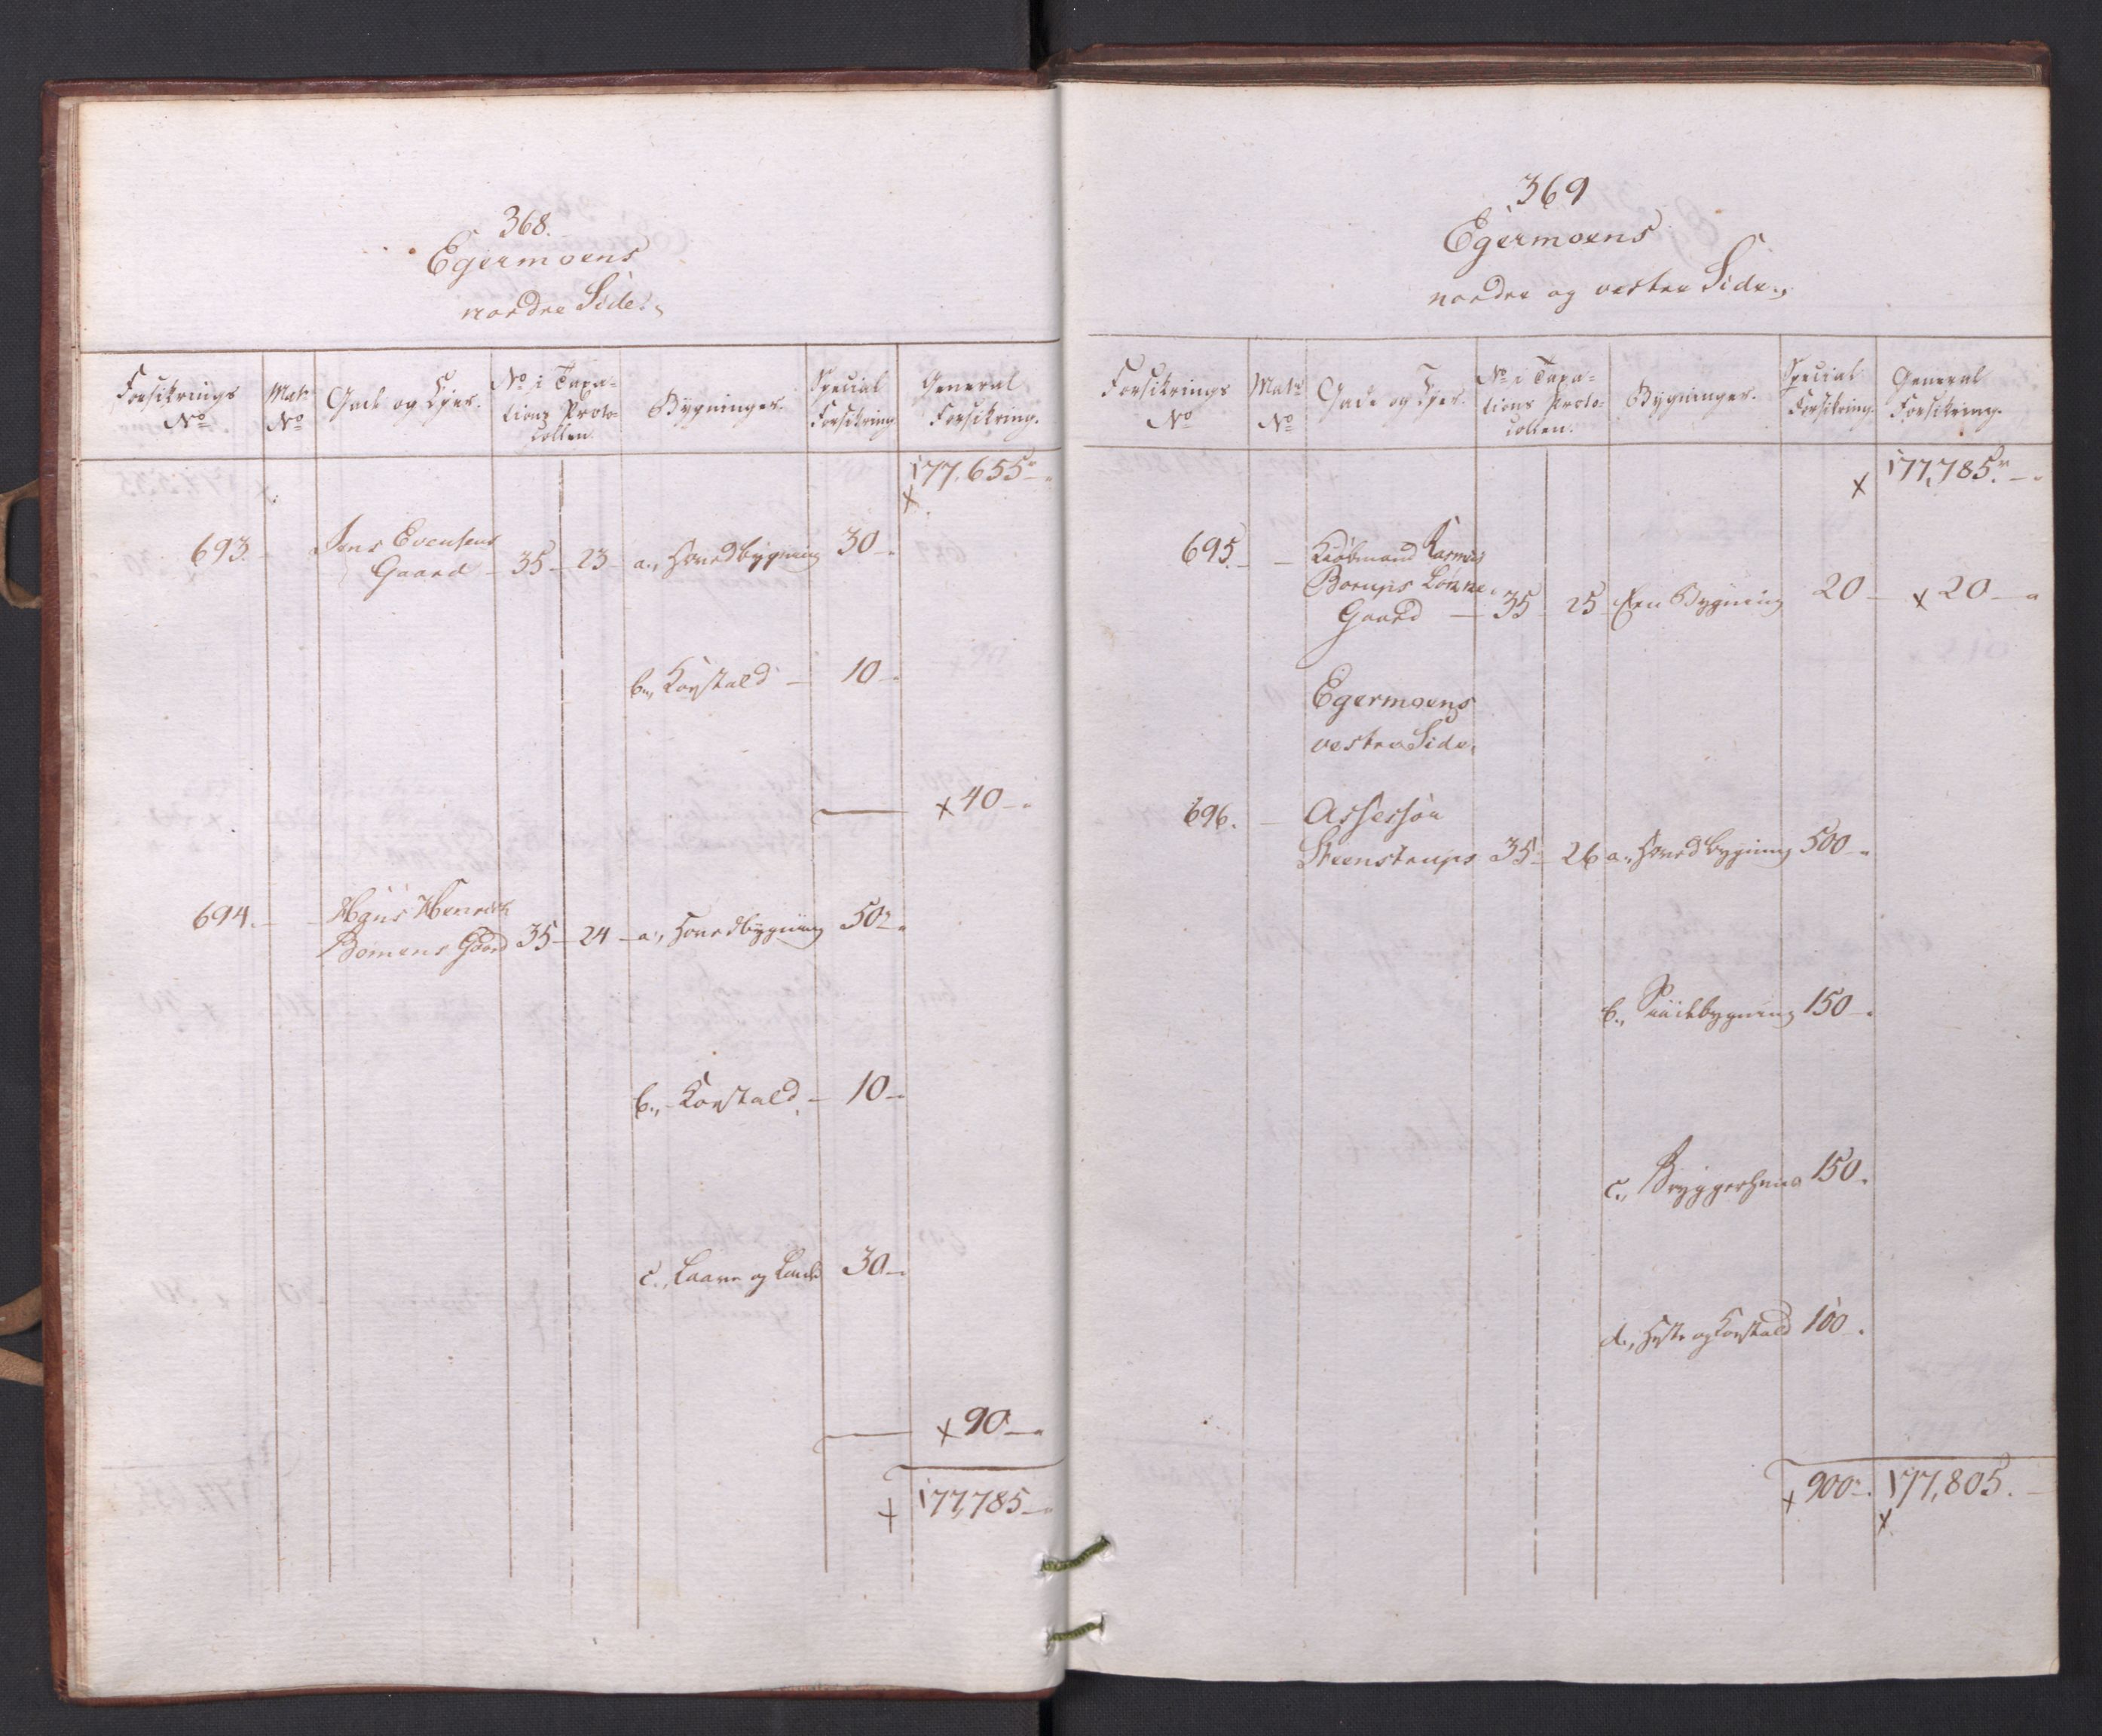 368.
Egermoens
nordre Side.
Forsikrings No
Matr. No
Gade og Ejer.
No i Taxa-
tions Proto-
collen.
Bygninger.
Special Forsikring
General Forsikring.
177,655
693. Jens Evensens
Gaard 35 23 a., Hovedbygning 30
b., Koestald 10
x 40
694. Hans Henrich
Bomens Gaard 35 24 a., Hovedbygning 50
b., Koestald 10
c., Laave og Lade 30
x 90
x 177,785
369
Egermoens
nordre og vestre Side.
Forsikrings No
Matr. No
Gade og Ejer.
No i Taxa-
tions Proto-
collen.
Bygninger.
Special Forsikring.
General Forsikring.
x 177,785
695. Kiøbmand
Borups
Gaard 35 25 Een Bygning 20 x 20
Egermoens
vestre Side.
696. Assessor
Steenstrups 35 26 a., Hovedbygning 500
b., Sidebygning 150
c., Bryggerhuus 150
d., Heste og Koestald 100
x 900 177,805.
x